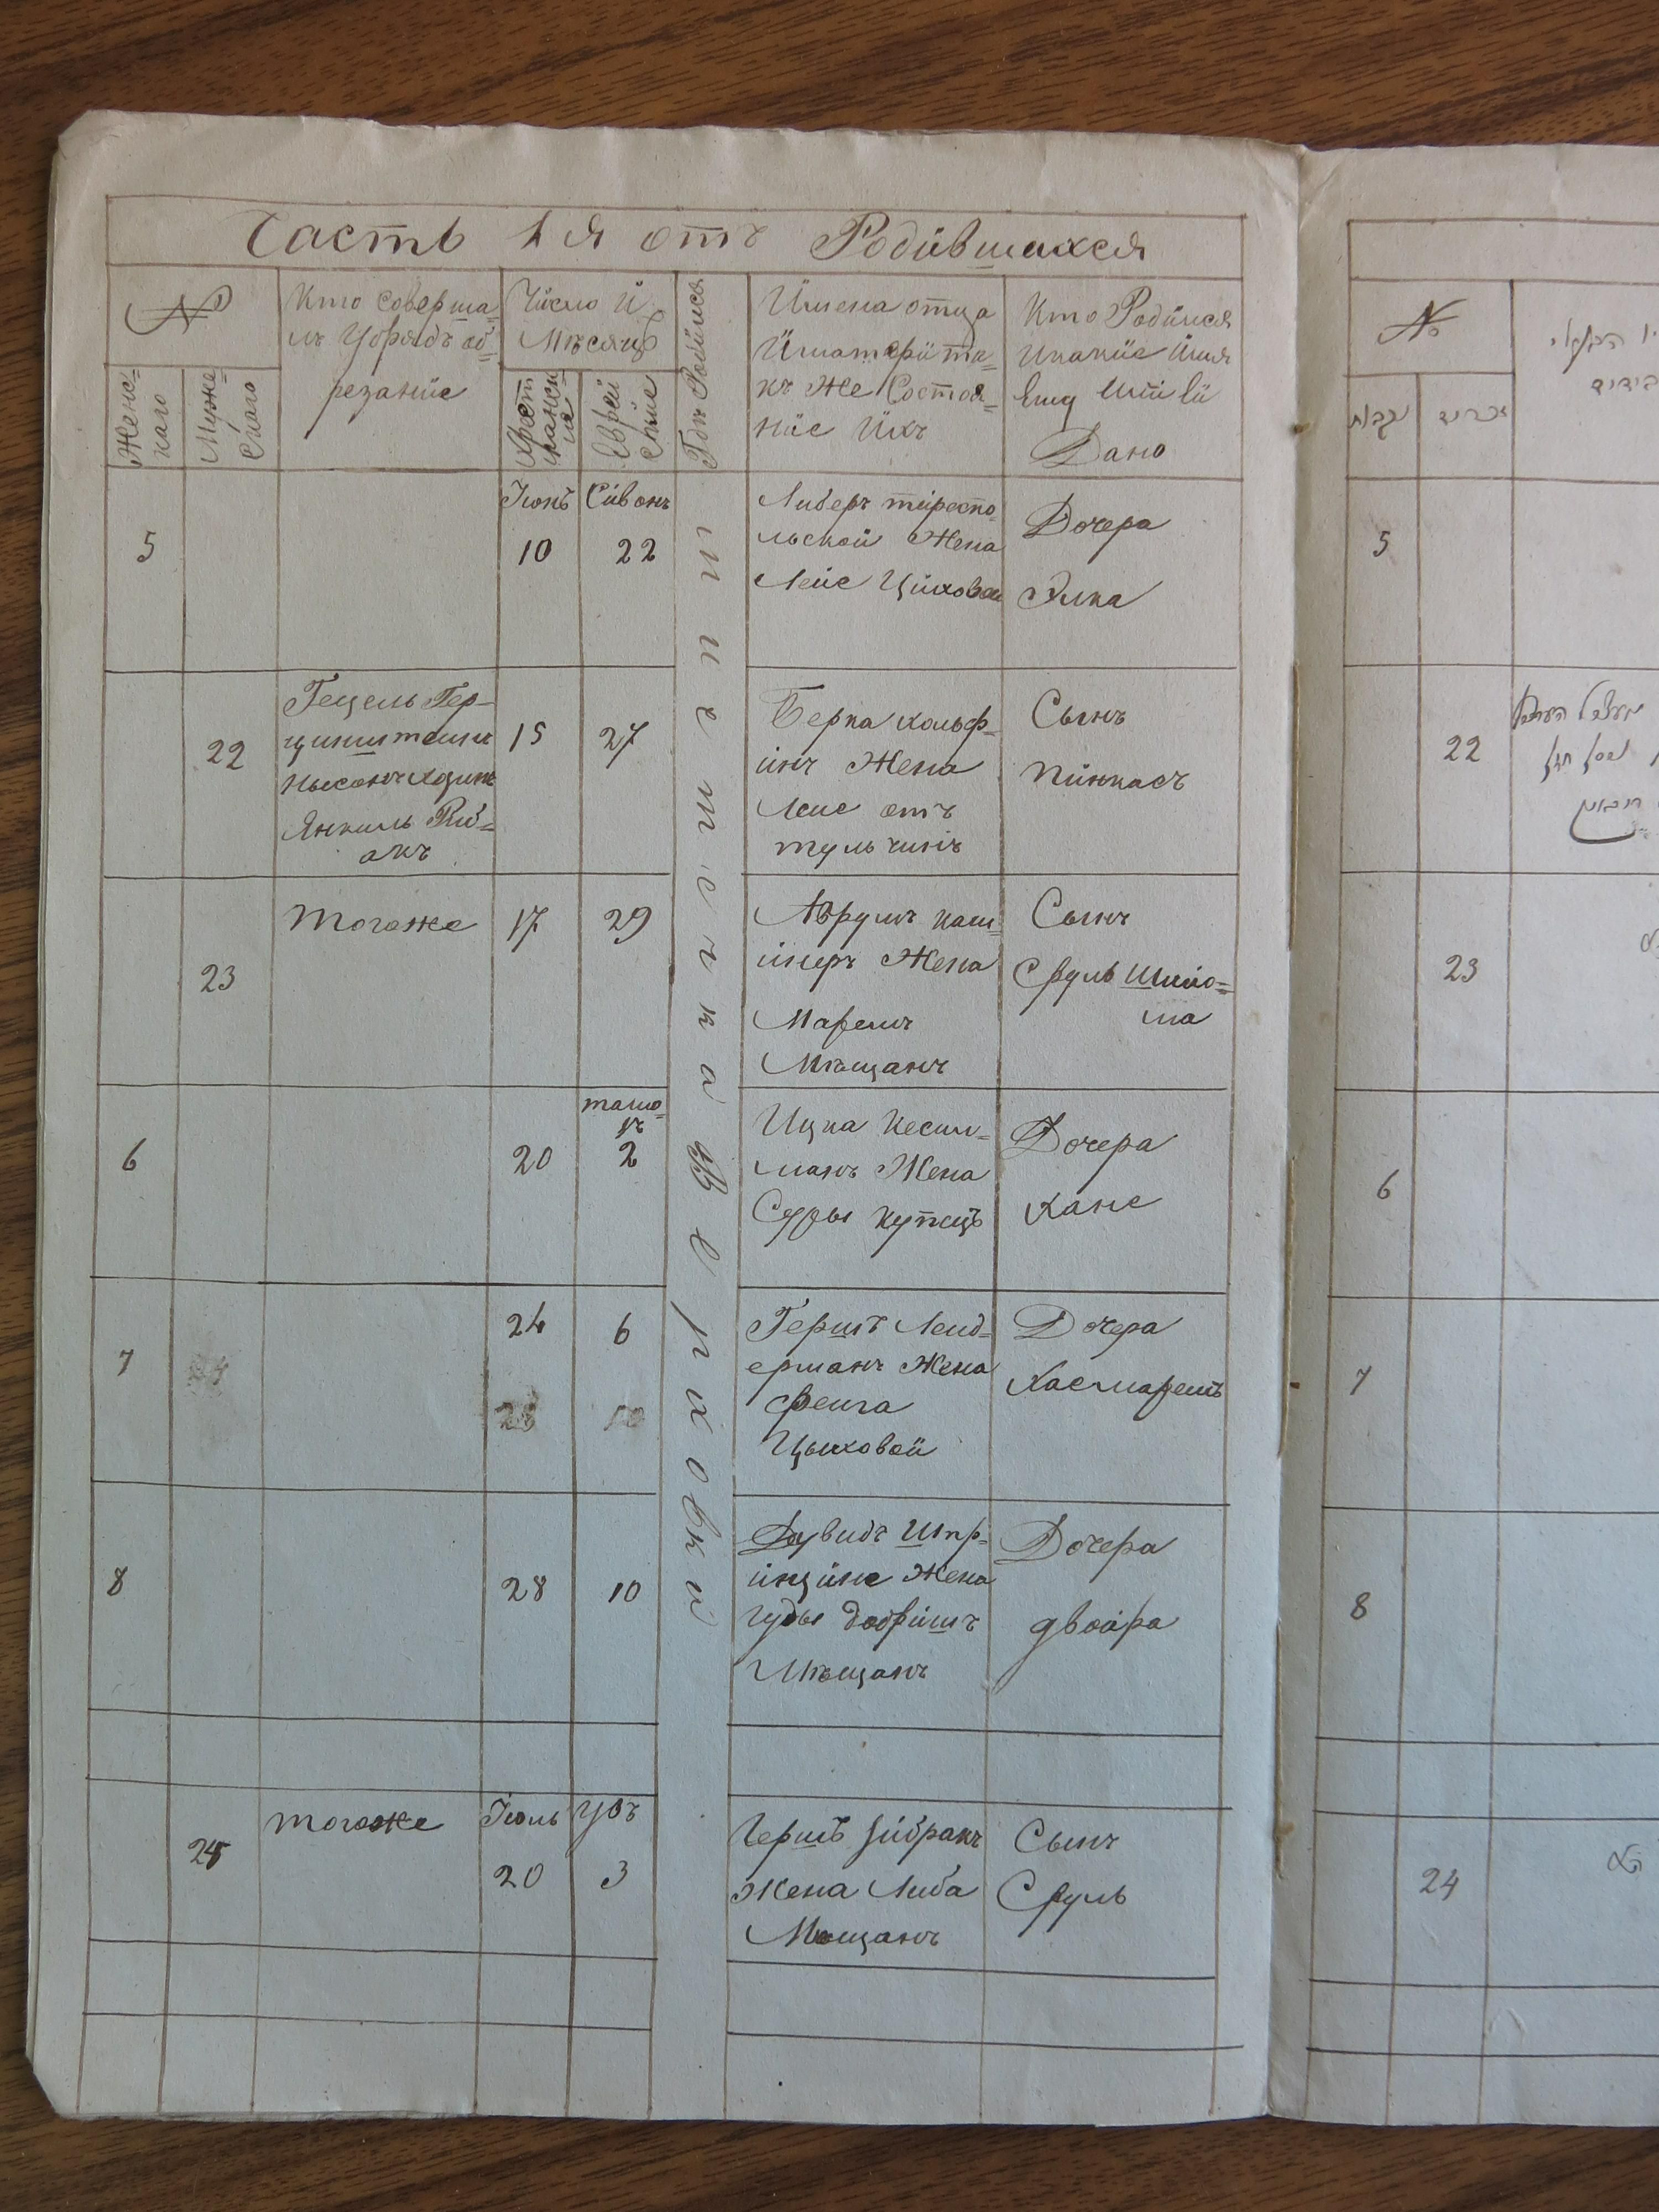 Часть 1я отъ Родившихся
№
Женс=
каго
Муже=
скаго
Кто соверша=
лъ убрядъ об=
резаніе
Число и
Мѣсяцъ
Христ
іански
е
Еврей
скіе
Где Родились
Имена отца
И матери та=
къ же Состоя=
ніе ихъ
Кто Родился
и какіе имя
Ему или ей
Дано
5
Іюнь
10
Сивонъ
22
Либеръ тирespо=
льской Жена
Леие Цѣховой
Дочера
Элка
22
Гецель Гер-
цинштеинъ
Нысонъ Хазинъ
Янкиль Риб=
акъ
15
27
Берка Хольф=
инъ Жена
Леие отъ
тульчинъ
Сынъ
Пинкасъ
23
Тогоже
17
29
Аврумъ каш=
инеръ Жена
Маремъ
Мѣщанъ
Сынъ
Сруль Шміо=
ма
6
20
тамо=
зъ
2
Ицка Кесил=
манъ Жена
Суры купецъ
Дочера
Хане
7
24
6
Гершъ Леид=
ерманъ Жена
Феига
Цыховой
Дочера
Хаемаремъ
8
28
10
Дувидъ Шпр=
инцине Жена
Гуды Добришъ
Мѣщанъ
Дочера
двоира
24
Тогоже
Іюль
20
Увъ
3
Гершъ Зибракъ
Жена Либа
Мещанъ
Сынъ
Сруль
в местечка Верховки
№
נקבות
זכרים
5
22
23
6
7
8
24